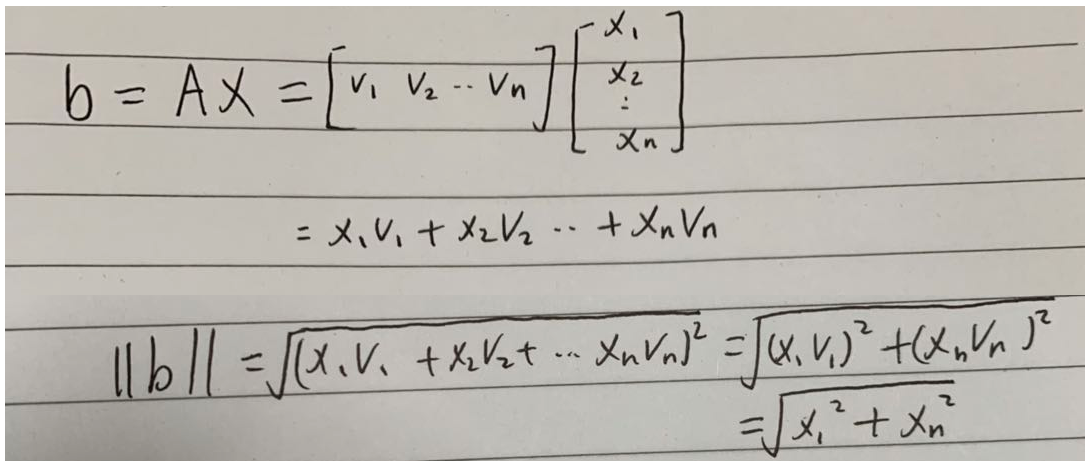 b = AX = [v₁ v₂ ·· vₙ] [x₁ x₂ ⋮ xₙ]
= x₁v₁ + x₂v₂ ·· + xₙvₙ
||b|| = √(x₁v₁ + x₂v₂ + ··· xₙvₙ)² = √(x₁v₁)² + (xₙvₙ)²
= √x₁² + xₙ²